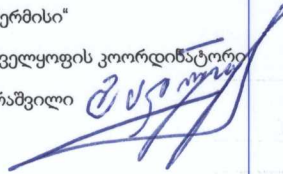 ერმისი“
ველყოფის კოორდინატორი
რაშვილი